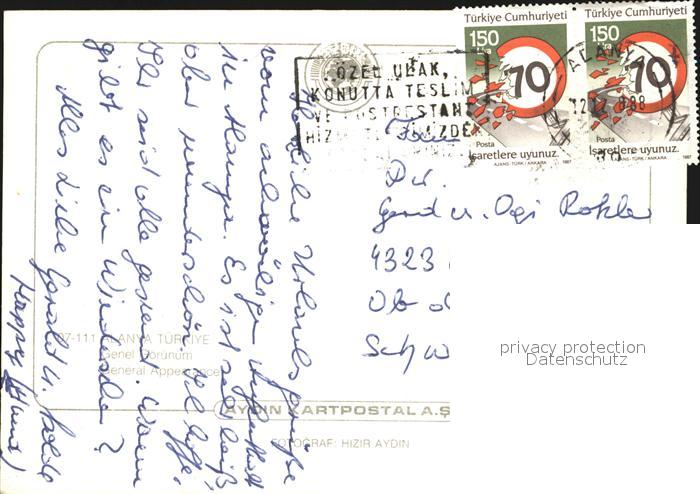 Türkiye Cumhuriyeti
150
lira
70
Posta
İşaretlere uyunuz.
AJANS-TÜRK / ANKARA 1987
Türkiye Cumhuriyeti
150
lira
70
Posta
İşaretlere uyunuz.
AJANS-TÜRK / ANKARA 1987
ÖZEL ULAK,
KONUTTA TESLİM
VE POSTRESTANT
ALAN
Herzliche Urlaubsgrüße
vom
in Alanya. Es ist sehr heiß,
aber wunderschön. Ich hoffe,
Ihr seid alle gesund. Wann
gibt es ein Wiedersehen?
Alles Liebe Gerald u.
Happy
Fam
Dr.
Gerd u. Ogi Rokler
4323
Ob d
Schw
07-111 ALANYA TÜRKİYE
Genel Görünüm
General Appearance
AYDIN KARTPOSTAL A.Ş
FOTOĞRAF: HIZIR AYDIN
privacy protection
Datenschutz